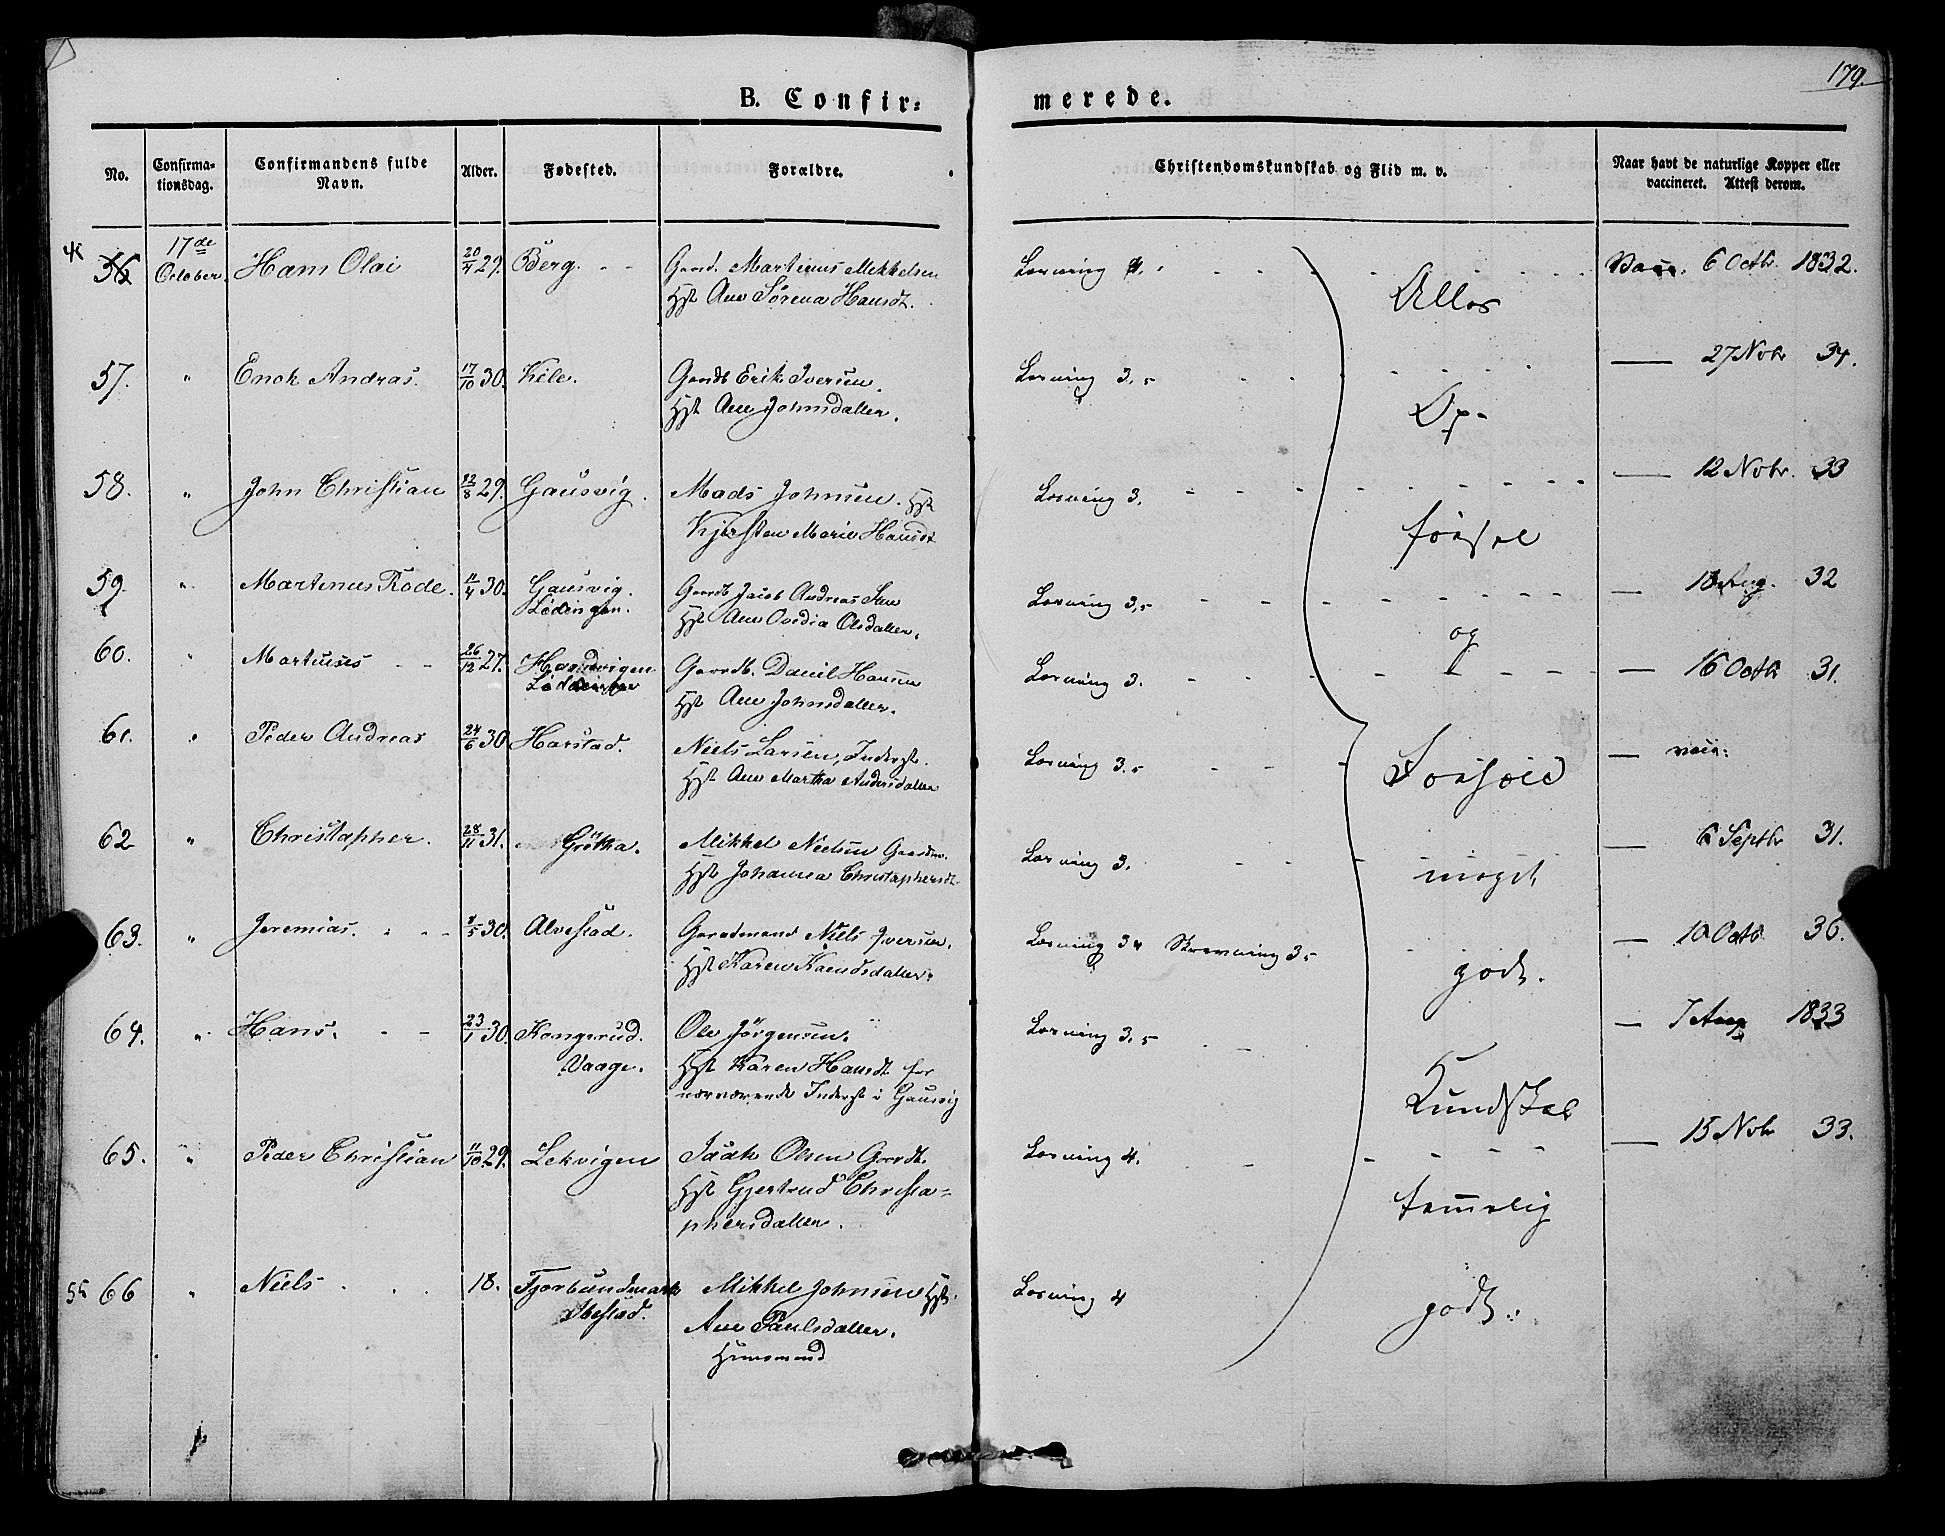 179.
B. Confir=
merede.
No.
Confirma=
tionsdag.
Confirmandens fulde
Navn.
Alder.
Fødested.
Forældre.
Christendomskundskab og Flid m. v.
Naar havt de naturlige Kopper eller
vaccineret. Attest derom.
56 17de October Hans Olai 20/4 29. Berg. Gaard. Martinus Mikkelsen
Hst Ane Sørena Hansdt.
Læsning
Vacc. 6 Octbr. 1832.
57. " Enok Andras. 17/10 30. Kile. Gaardb Erik Iversen
Hst Ane Johnsdatter.
Læsning 3,5
— 27 Novbr 34.
58. " John Christian 12/8 29. Gausvig. Mads Johnsen. Hst
Kjersten Marie Hansdt
Læsning 3.
— 12 Novbr. 33
59. " Martinus Rode. 11/4 30. Gausvig. Gaardb Jacob Andreas
Lødingen. Hst Ane Ovedia Olsdatter.
Læsning 3,5
— 18 Aug. 32
60. " Martinus 26/12 27. Gaardb. Daniel Hansen
Hst Ane Johnsdatter.
Læsning 3.
— 16 Octbr 31.
61. " Peder Andreas 24/6 30 Harstad. Niels Larsen, Inderst.
Hst Ane Martha Andersdatter
Læsning 3,5
— vacc.
62 " Christapher. 28/11 31. Grøtha. Mikkel Nielsen Gaardm.
Hst Johanna Christaphersdt.
Læsning 3.
— 6 Septbr 31.
63. " Jeremias. 8/5 30. Alvestad. Gaardmand Niels Iversen.
Hst Karen
Læsning 3 Skrivning 3,5
— 10 Octb 36.
64. " Hans. 23/1 30. Kongsrud. Ole Jørgensen.
Vaage. Hst Karen Hansdt for
nærværende Inderst i Gausvig
Læsning 3,5
— 7 Aug 1833
65. " Peder Christian 11/10 29. Lekvigen Isak Olsen Gaardb.
Hst Gjertrud Christa=
phersdatter.
Læsning 4.
— 15 Novbr 33.
66 " Niels 18. Mikkel Johnsen Hst.
Ibestad. Ane Paulsdatter.
Huusmand
Læsning 4
Alles
Op-
førsel
og
meget
godt.
Kundskab
temmelig
godt.